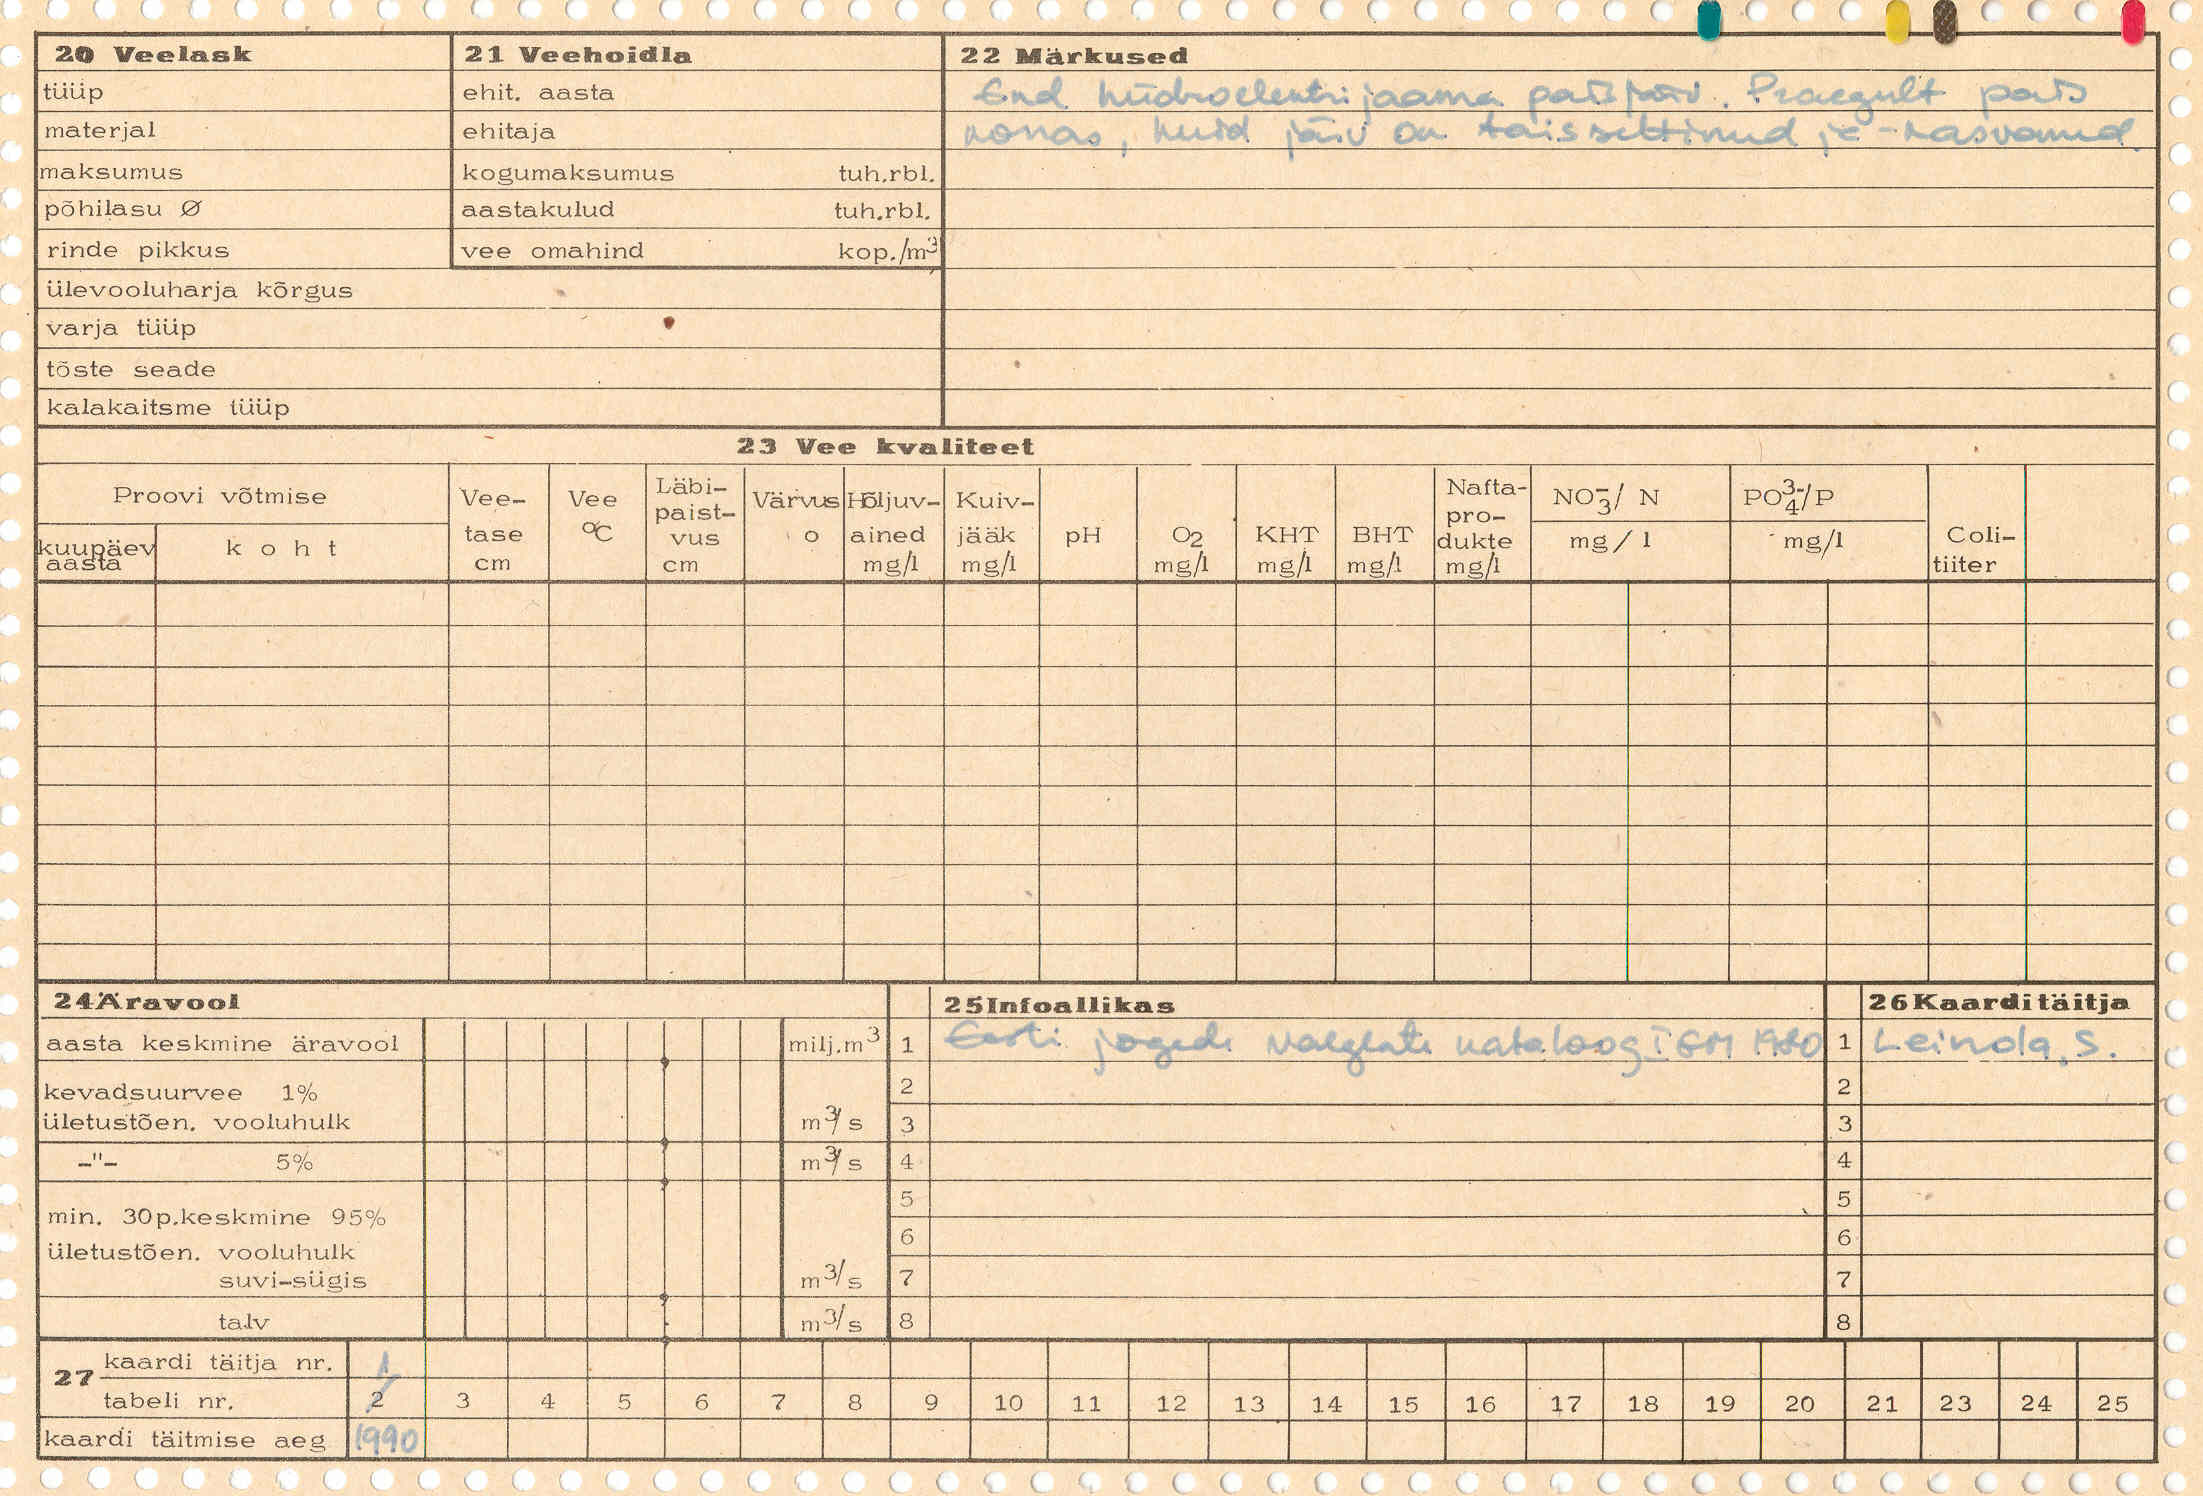 20 Veelask
tüüp
materjal
maksumus
põhilasu Ø
rinde pikkus
ülevooluharja kõrgus
varja tüüp
tõste seade
kalakaitsme tüüp
21 Veehoidla
ehit. aasta
ehitaja
kogumaksumus tuh.rbl.
aastakulud tuh.rbl.
vee omahind kop./m³
22 Märkused
End hüdroelektrijaama paisjärv. Praegult pais
korras, kuid järv on täis settinud ja -kasvanud.
23 Vee kvaliteet
Proovi võtmise
kuupäev
aasta
koht
Vee-
tase
cm
Vee
°C
Läbi-
paist-
vus
cm
Värvus
o
Hõljuv-
ained
mg/l
Kuiv-
jääk
mg/l
pH
O2
mg/l
KHT
mg/l
BHT
mg/l
Nafta-
pro-
dukte
mg/l
NO₃⁻/ N
mg/l
PO₄³⁻/P
mg/l
Coli-
tiiter
24 Äravool
aasta keskmine äravool milj.m³
kevadsuurvee 1%
ületustõen. vooluhulk m³/s
-"- 5% m³/s
min. 30p.keskmine 95%
ületustõen. vooluhulk
suvi-sügis m³/s
talv m³/s
25 Infoallikas
1 Eesti jogede valglate kataloog I 1980
2
3
4
5
6
7
8
26 Kaardi täitja
1 Leinola, S.
2
3
4
5
6
7
8
27 kaardi täitja nr. 1
tabeli nr. 2 3 4 5 6 7 8 9 10 11 12 13 14 15 16 17 18 19 20 21 23 24 25
kaardi täitmise aeg 1990